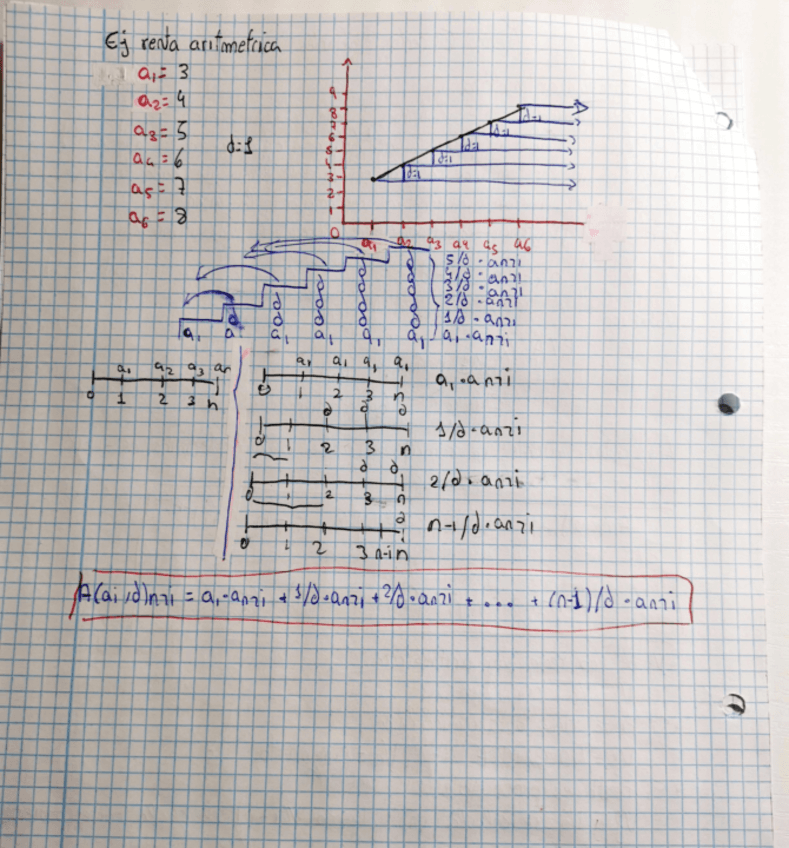 Ej renta aritmetrica
a₁= 3
a₂= 4
a₃= 5
a₄= 6
a₅= 7
a₆= 8
d=1
9
8
7
6
5
4
3
2
1
0
d=1
d=1
d=1
d=1
d=1
a₁ a₂ a₃ a₄ a₅ a₆
5/d · an⌝i
4/d · an⌝i
3/d · an⌝i
2/d · an⌝i
1/d · an⌝i
a₁ · an⌝i
d d d d d
d d d d
d d d
d d
d
a₁ a₁ a₁ a₁ a₁ a₁
a₁ a₂ a₃ an
0 1 2 3 n
a₁ a₁ a₁ a₁
0 1 2 3 n
a₁ · an⌝i
d d d
0 1 2 3 n
1/d · an⌝i
d d
0 1 2 3 n
2/d · an⌝i
d
0 1 2 3 n-1 n
n-1/d · an⌝i
A(ai,d)n⌝i = a₁·an⌝i + 1/d·an⌝i + 2/d·an⌝i + ... + (n-1)/d · an⌝i